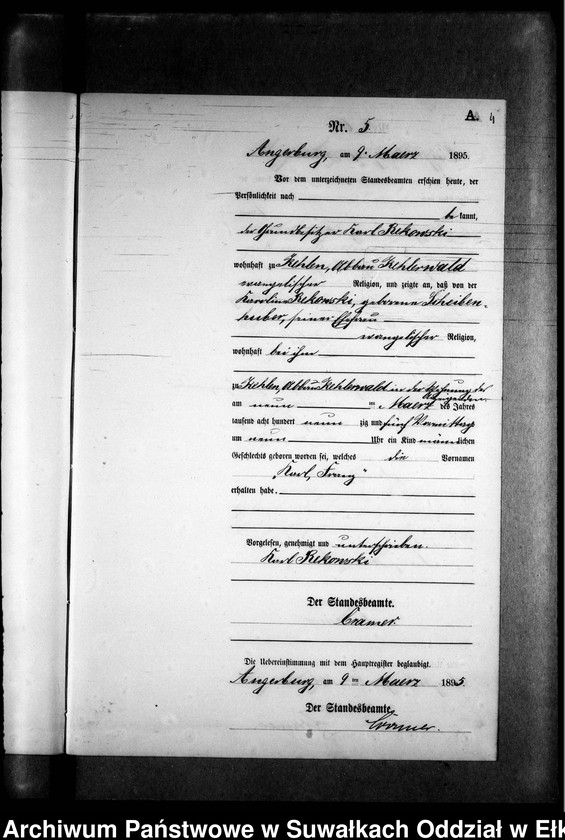 A. 4
Nr. 5
Angerburg, am 9. Maerz 1895.
Vor dem unterzeichneten Standesbeamten erschien heute, der
Persönlichkeit nach
be kannt,
der Grundbesitzer Karl Rekowski
wohnhaft zu Kehlen, Abbau Kehlerwald
evangelischer Religion, und zeigte an, daß von der
Karoline Rekowski, geborene Scheiben-
huber, seiner Ehefrau
evangelischer Religion,
wohnhaft bei ihm
zu Kehlen, Abbau Kehlerwald in der Wohnung des
Anzeigenden
am neun ten Maerz des Jahres
tausend acht hundert neun zig und fünf Vormittags
um neun Uhr ein Kind männlichen
Geschlechts geboren worden sei, welches die Vornamen
„Karl, Franz"
erhalten habe.
Vorgelesen, genehmigt und unterschrieben.
Karl Rekowski
Der Standesbeamte.
Cramer.
Die Uebereinstimmung mit dem Hauptregister beglaubigt.
Angerburg, am 9 ten Maerz 1895.
Der Standesbeamte.
Cramer.
Archiwum Państwowe w Suwałkach Oddział w Ełk